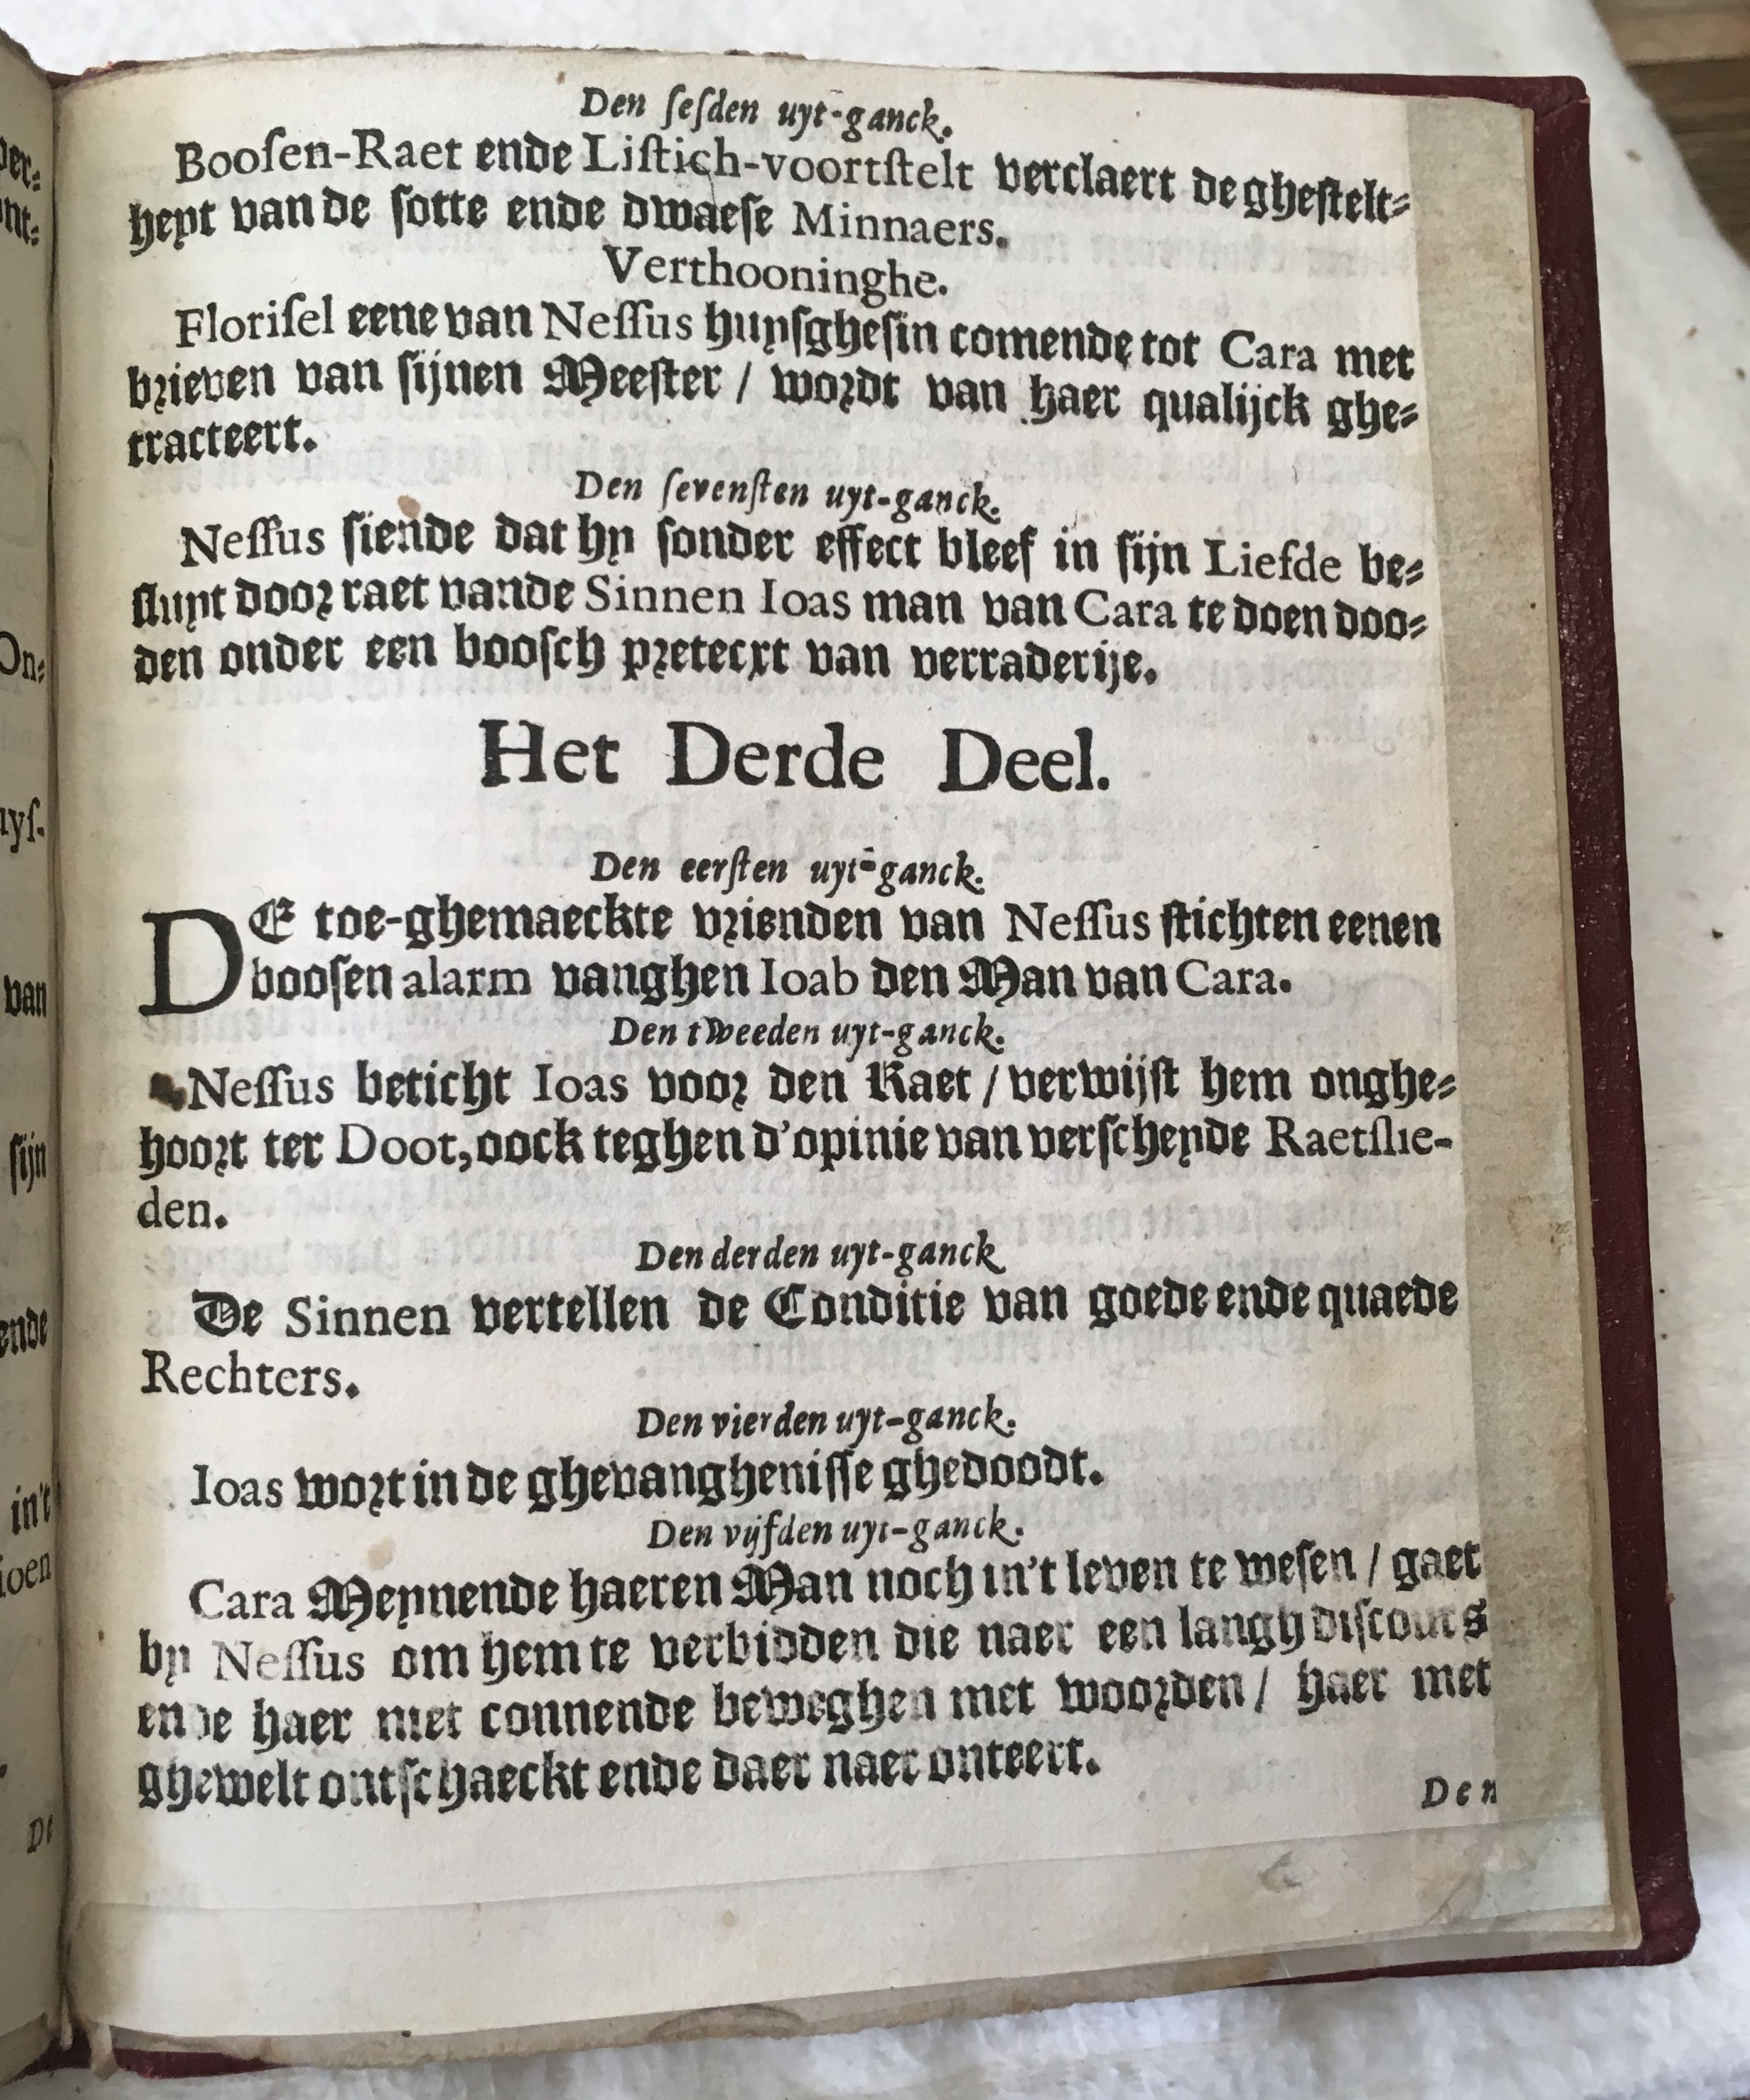 Den ſeſden uyt-ganck.
Booſen-Raet ende Liſtich-voortſtelt verclaert de gheſtelt-
heyt van de ſotte ende dwaeſe Minnaers.
Verthooninghe.
Floriſel eene van Neſſus huyſgheſin comende tot Cara met
brieven van ſijnen Meeſter / wordt van haer qualijck ghe-
tracteert.
Den ſevenſten uyt-ganck.
Neſſus ſiende dat hy ſonder effect bleef in ſijn Liefde be-
ſluyt door raet vande Sinnen Ioas man van Cara te doen doo-
den onder een booſch pretecxt van verraderije.
Het Derde Deel.
Den eerſten uyt-ganck.
DE toe-ghemaeckte vrienden van Neſſus ſtichten eenen
booſen alarm vanghen Ioab den Man van Cara.
Den tweeden uyt-ganck.
Neſſus beticht Ioas voor den Raet / verwijſt hem onghe-
hoort ter Doot, oock teghen d'opinie van verſcheyde Raetſlie-
den.
Den derden uyt-ganck
De Sinnen vertellen de Conditie van goede ende quaede
Rechters.
Den vierden uyt-ganck.
Ioas wort in de ghevangheniſſe ghedoodt.
Den vijfden uyt-ganck.
Cara Meynende haeren Man noch in't leven te weſen / gaet
by Neſſus om hem te verbidden die naer een langh diſcours
ende haer niet connende beweghen met woorden / haer met
ghewelt ontſchaeckt ende daer naer onteert.
Den
van
ſijn
ende
in't